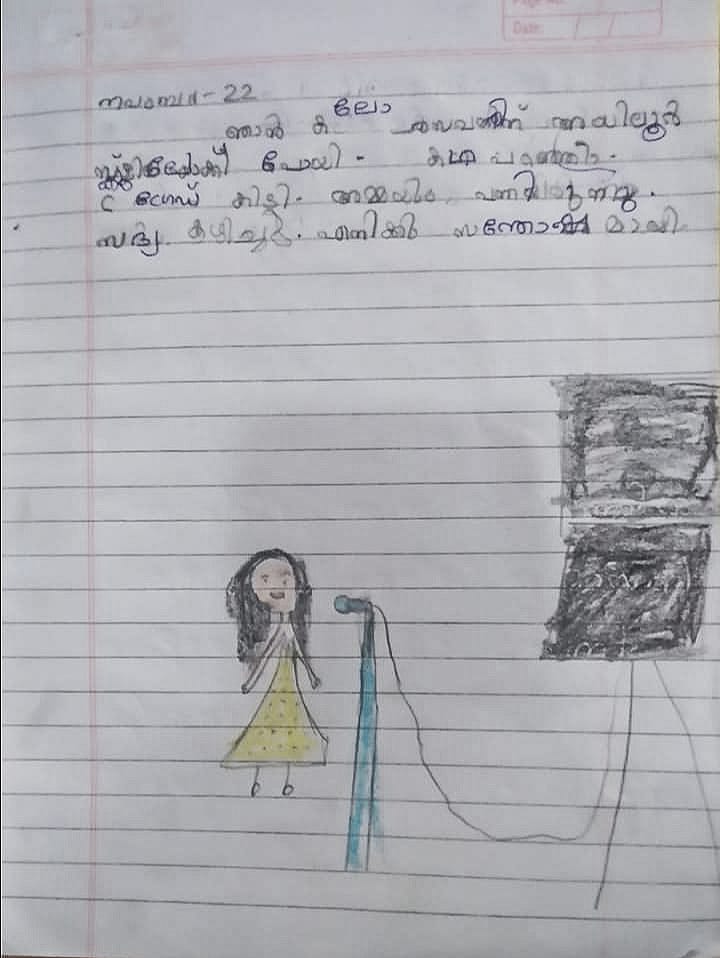 Page No.
Date:
നവംബർ - 22
ഞാൻ കലോത്സവത്തിന് അയിലൂർ
സ്കൂളിലേക്ക് പോയി. കഥ പറഞ്ഞു.
C ഗ്രേഡ് കിട്ടി. അമ്മയും
സദ്യ കഴിച്ചു. എനിക്ക് സന്തോഷമായി.